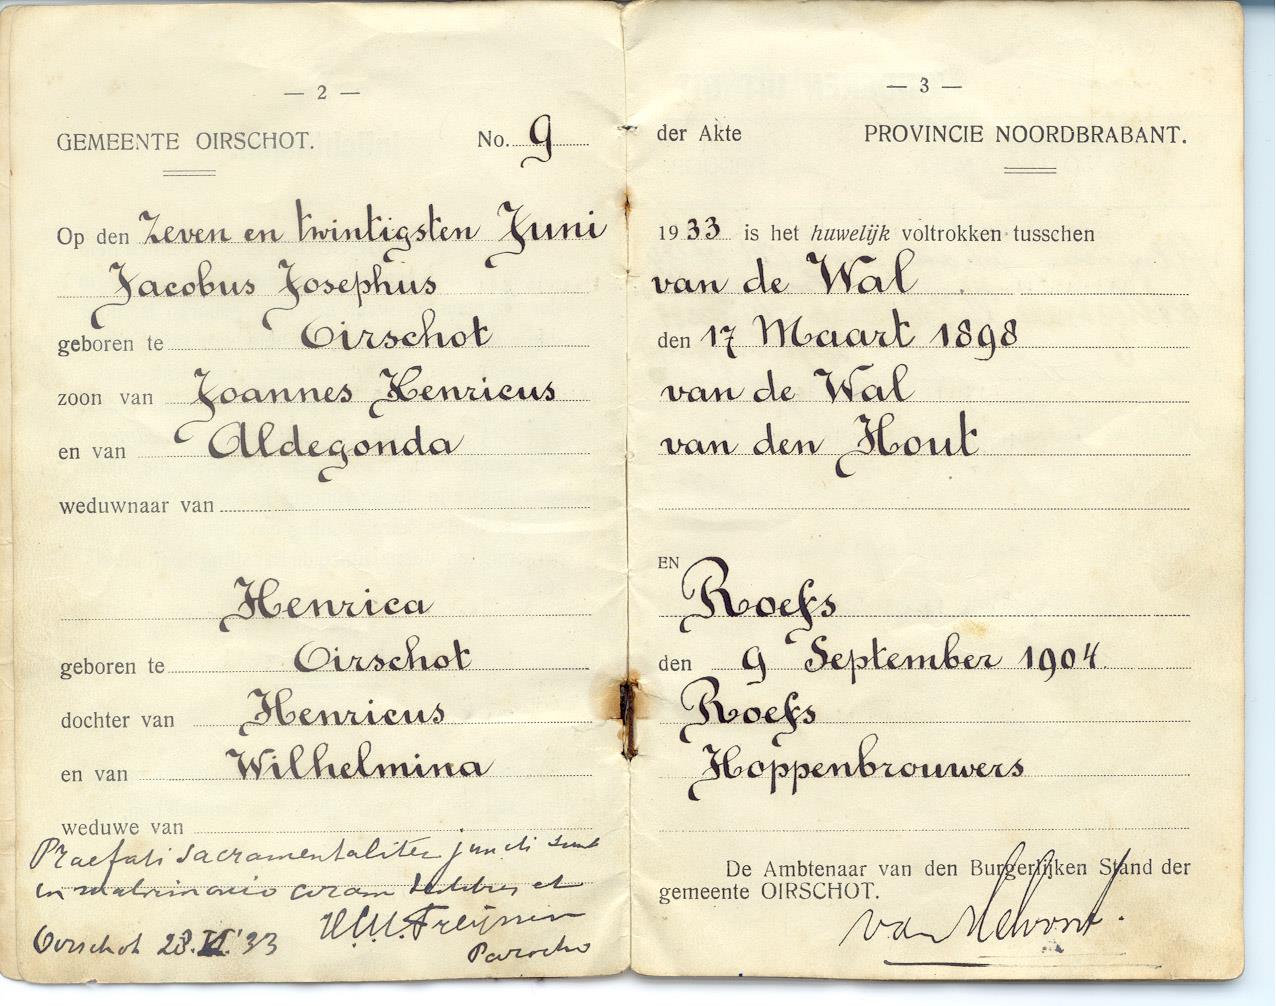 — 2 —
GEMEENTE OIRSCHOT. No. 9
Op den Zeven en twintigsten Juni
Jacobus Josephus
geboren te Oirschot
zoon van Joannes Henricus
en van Aldegonda
weduwnaar van
Henrica
geboren te Oirschot
dochter van Henricus
en van Wilhelmina
weduwe van
Praefati sacramentaliter juncti sunt
in matrimonio coram testibus et
Parocho
Oirschot 28.VI.'33
— 3 —
der Akte PROVINCIE NOORDBRABANT.
1933 is het huwelijk voltrokken tusschen
van de Wal
den 17 Maart 1898
van de Wal
van den Hout
EN
Roefs
den 9 September 1904
Roefs
Hoppenbrouwers
De Ambtenaar van den Burgerlijken Stand der
gemeente OIRSCHOT.
van